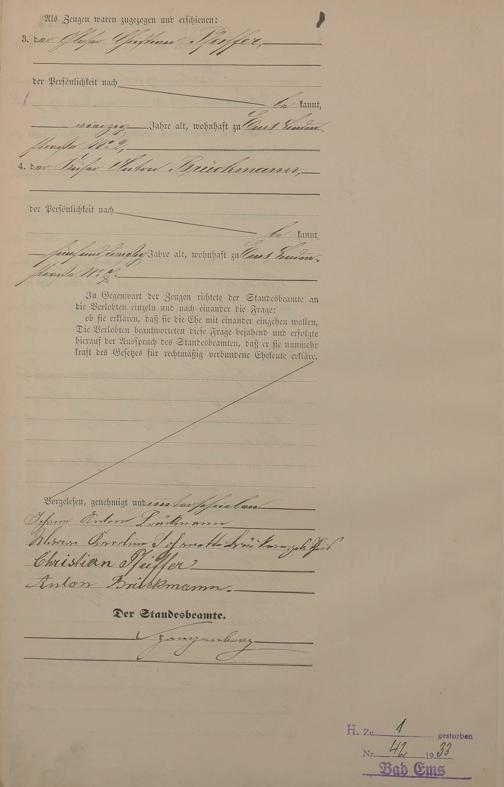 Als Zeugen waren zugezogen und erschienen:
3. der Glaser Christian Pfeiffer,
der Persönlichkeit nach
be kannt,
Jahre alt, wohnhaft zu Ems, Linden-
straße No 2,
4. der Anton Brückmann,
der Persönlichkeit nach
be kannt,
Jahre alt, wohnhaft zu Ems, Linden-
straße No
In Gegenwart der Zeugen richtete der Standesbeamte an
die Verlobten einzeln und nach einander die Frage:
ob sie erklären, daß sie die Ehe mit einander eingehen wollen.
Die Verlobten beantworteten diese Frage bejahend und erfolgte
hierauf der Ausspruch des Standesbeamten, daß er sie nunmehr
kraft des Gesetzes für rechtmäßig verbundene Eheleute erkläre.
Vorgelesen, genehmigt und unterschrieben
Johann Anton Brückmann
Brückmann geb.
Christian Pfeiffer
Anton Brückmann.
Der Standesbeamte.
H. Zu 1 gestorben
Nr. 42 1933
Bad Ems